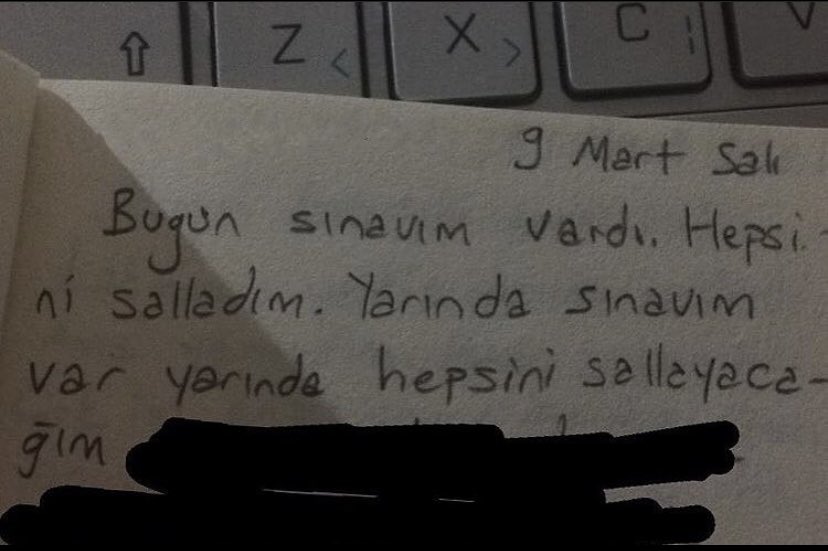 Z < X > C V
9 Mart Salı
Bugün sınavım vardı. Hepsi-
ni salladım. Yarında sınavım
var yarında hepsini sallayaca-
ğım